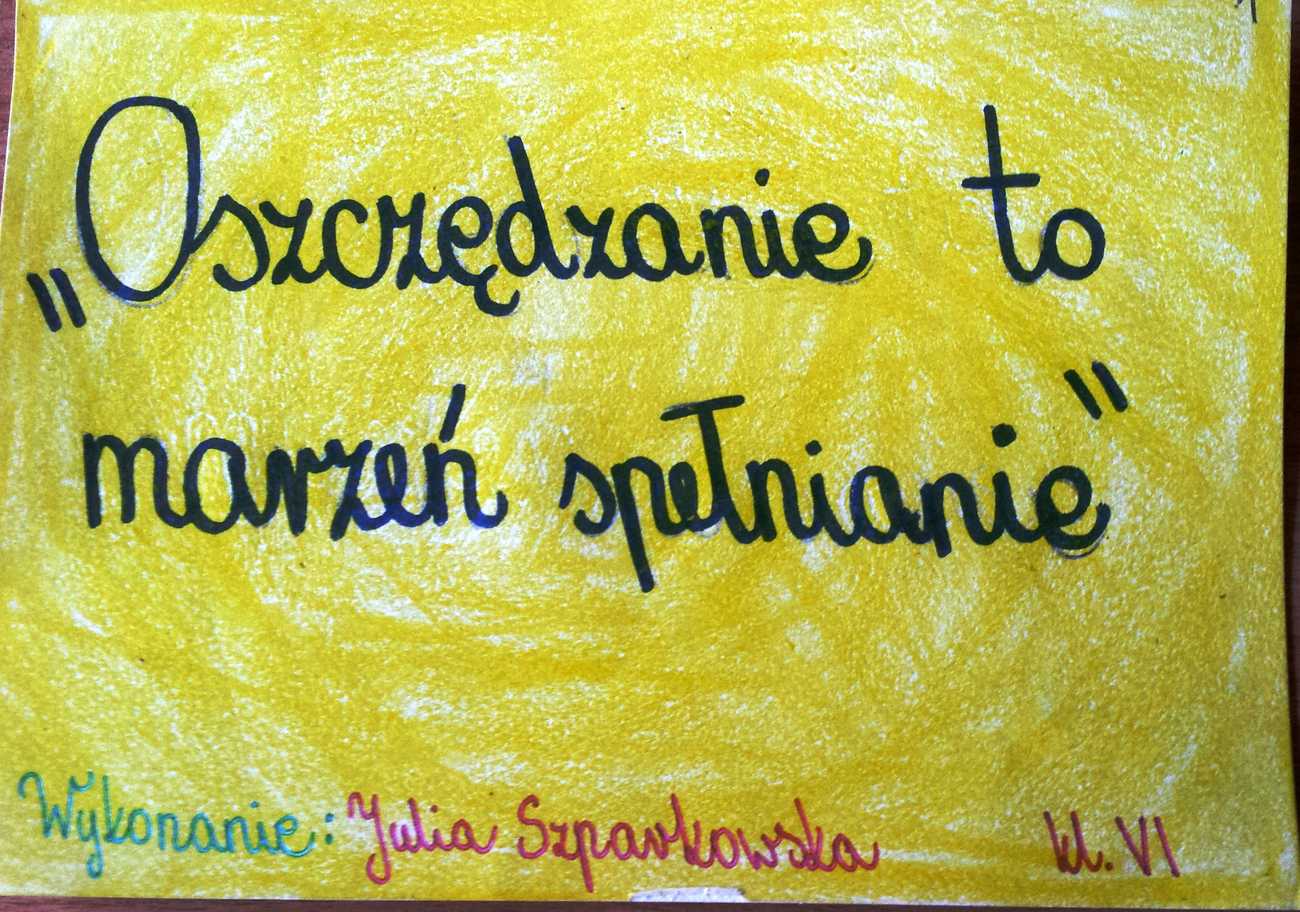 „Oszczędzanie to
marzeń spełnianie"
Wykonanie: Julia Szparkowska kl. VI